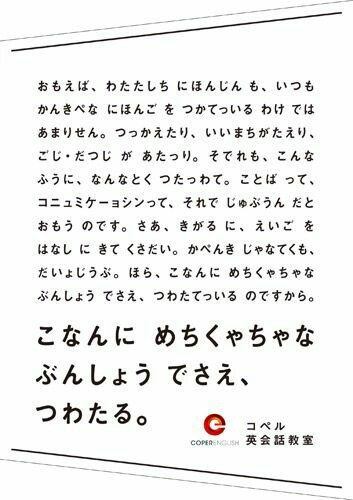 おもえば、わたたしち にほんじん も、いつも
かんきぺな にほんご を つかてっいる わけ では
あまりせん。つっかえたり、いいまちがたえり、
ごじ・だつじ が あたっり。そでれも、こんな
ふうに、なんなとく つたっわて。ことば って、
コニュミケーョシンって、それで じゅぶうん だと
おもう のです。さあ、きがる に、えいご を
はなし に きて くさだい。かぺんき じゃなてくも、
だいょじうぶ。ほら、こなんに めちくゃちゃな
ぶんしょう でさえ、つわたてっいる のですから。
こなんに めちくゃちゃな
ぶんしょう でさえ、
つわたる。
COPER ENGLISH
コペル
英会話教室